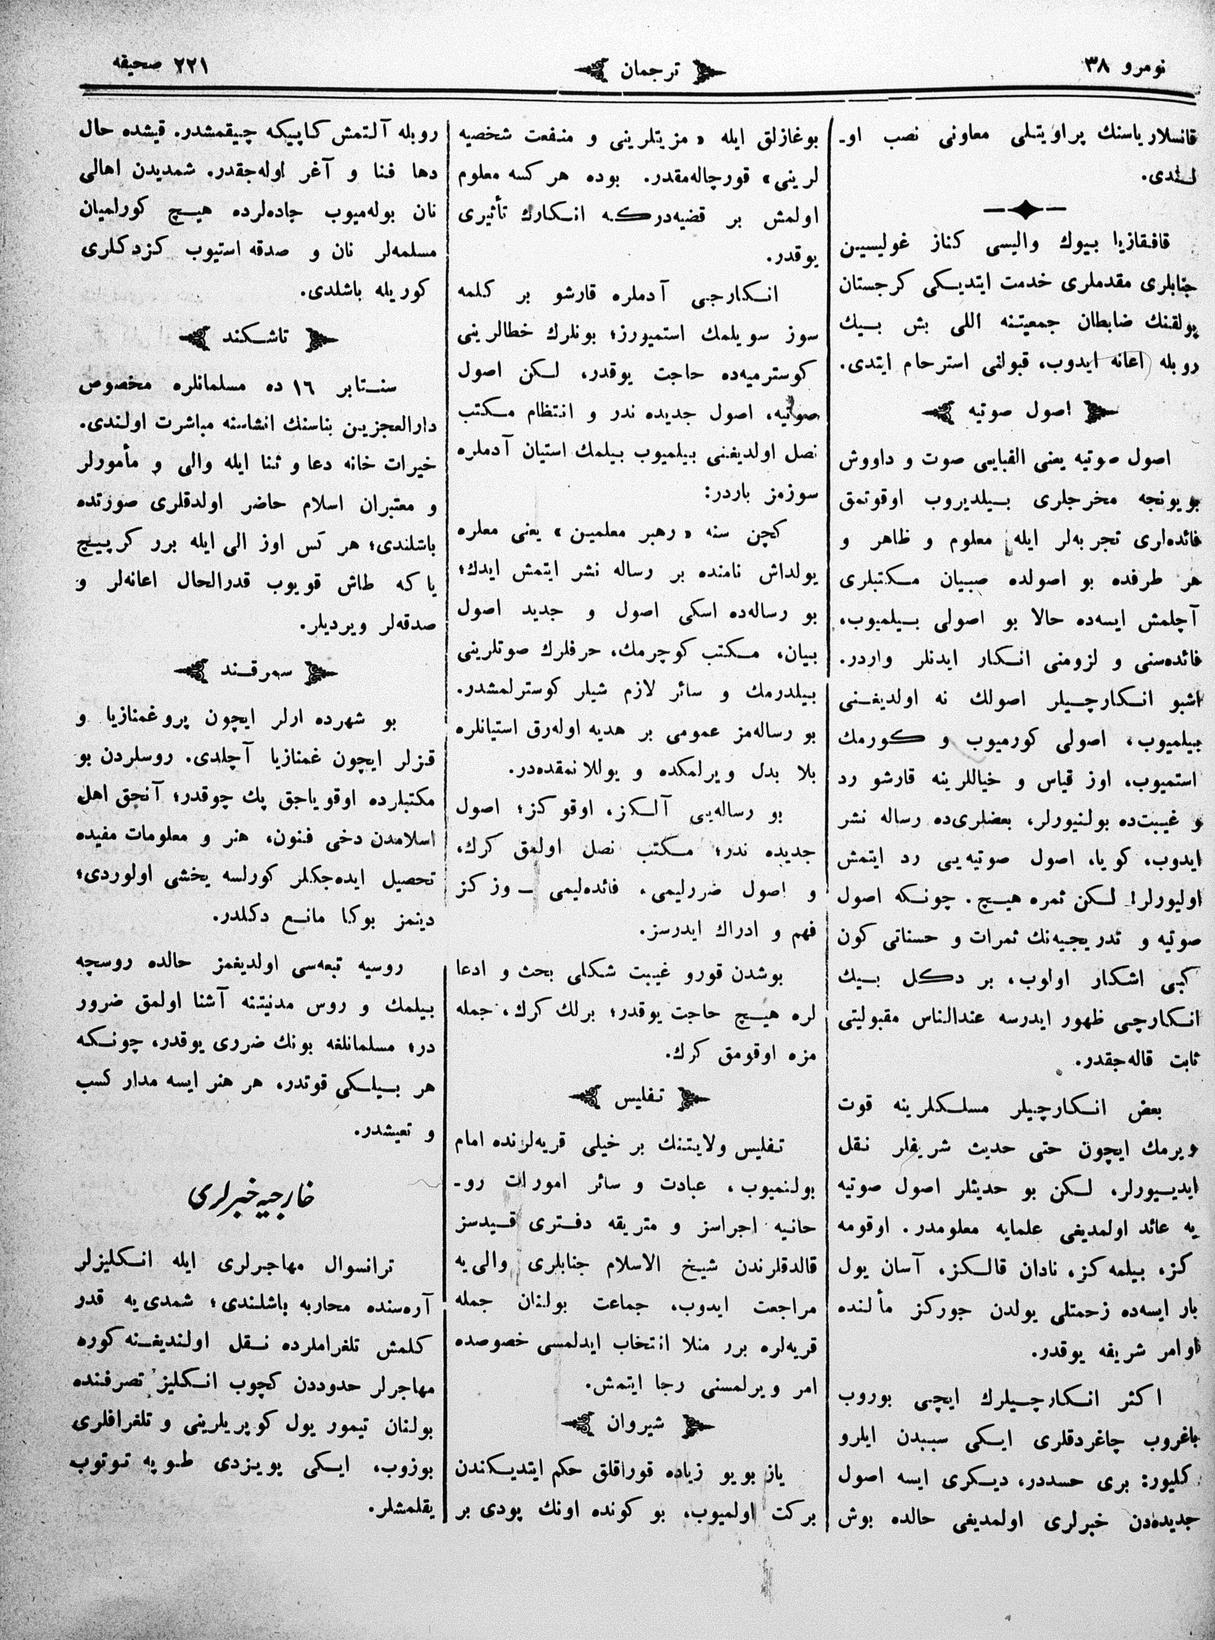 نومرو ٣٨
ترجمان
٢٢١ صحيفه
قانسلارياسنك پراويتلى معاونى نصب او-
لندى.
قافقازيا بيوك واليسى كناز غوليسين
جنابلرى مقدملرى خدمت ايتديكى كرجستان
پولقنك ضابطان جمعيتنه اللى بش بيك
روبله اعانه ايدوب، قبولنى استرحام ايتدى.
اصول صوتيه
اصول صوتيه يعنى الفبايى صوت و داووش
بويونجه مخرجلرى بيلديروب اوقوتمق
فائده‌لرى تجربه‌لر ايله معلوم و ظاهر و
هر طرفده بو اصولده صبيان مكتبلرى
آچلمش ايسه‌ده حالا بو اصولى بيلميوب،
فائده‌سنى و لزومنى انكار ايدنلر واردر.
اشبو انكارچيلر اصولك نه اولديغنى
بيلميوب، اصولى كورميوب و كورمك
استميوب، اوز قياس و خياللرينه قارشو رد
و غيبت‌ده بولنيورلر، بعضلرى‌ده رساله نشر
ايدوب، كويا، اصول صوتيه‌يى رد ايتمش
اوليورلر! لكن ثمره هيچ. چونكه اصول
صوتيه و تدريجيه‌نك ثمرات و حسناتى كون
كبى اشكار اولوب، بر دكل بيك
انكارچى ظهور ايدرسه عندالناس مقبوليتى
ثابت قاله‌جقدر.
بعض انكارچيلر مسلكلرينه قوت
ويرمك ايچون حتى حديث شريفلر نقل
ايدييورلر، لكن بو حديثلر اصول صوتيه
يه عائد اولمديغى علمايه معلومدر. اوقومه
كز، بيلمه‌كز، نادان قالكز، آسان يول
بار ايسه‌ده زحمتلى يولدن جوركز مألنده
اوامر شريفه يوقدر.
اكثر انكارجيلرك ايچى بوروب
باغروب چاغردقلرى ايكى سببدن ايلرو
كليور: برى حسددر، ديكرى ايسه اصول
جديده‌دن خبرلرى اولمديغى حالده بوش
بوغازلق ايله «مزيتلرينى و منفعت شخصيه
لرينى» قورچاله‌مقدر. بوده هر كسه معلوم
اولمش بر قضيه‌دركه انكارك تأثيرى
يوقدر.
انكارجى آدملره قارشو بر كلمه
سوز سويلمك استميورز؛ بونلرك خطالرينى
كوسترميه‌ده حاجت يوقدر، لكن اصول
صوتيه، اصول جديده ندر و انتظام مكتب
نصل اولديغنى بيلميوب بيلمك استيان آدملره
سوزمز باردر:
كچن سنه «رهبر معلمين» يعنى معلره
يولداش نامنده بر رساله نشر ايتمش ايدك؛
بو رساله‌ده اسكى اصول و جديد اصول
بيان، مكتب كوچرمك، حرفلرك صوتلرينى
بيلدرمك و سائر لازم شيلر كوسترلمشدر.
بو رساله‌مز عمومى بر هديه اوله‌رق استيانلره
بلا بدل ويرلمكده و يوللانمقده‌در.
بو رساله‌يى آلكز، اوقوكز؛ اصول
جديده ندر؛ مكتب نصل اولمق كرك،
و اصول ضررليمى، فائده‌ليمى - وزكز
فهم و ادراك ايدرسز.
بوشدن قورو غيبت شكلى بحث و ادعا
لره هيچ حاجت يوقدر؛ برلك كرك، جمله
مزه اوقومق كرك.
تفليس
تفليس ولايتنك بر خيلى قريه‌لرنده امام
بولنميوب، عبادت و سائر امورات رو-
حانيه اجراسز و متريقه دفترى قيدسز
قالدقلرندن شيخ الاسلام جنابلرى والى‌يه
مراجعت ايدوب، جماعت بولنان جمله
قريه‌لره برر منلا انتخاب ايدلمسى خصوصده
امر ويرلمسنى رجا ايتمش.
شيروان
ياز بويو زياده قوراقلق حكم ايتديكندن
بركت اولميوب، بو كونده اونك پودى بر
روبله آلتمش كاپيكه چيقمشدر. قيشده حال
دها فنا و آغر اوله‌جقدر. شمديدن اهالى
نان بوله‌ميوب جاده‌لرده هيچ كورلميان
مسلمه‌لر نان و صدقه استيوب كزدكلرى
كوريله باشلدى.
تاشكند
سنتابر ١٦ ده مسلمانلره مخصوص
دارالعجزين بناسنك انشاسنه مباشرت اولندى.
خيرات خانه دعا و ثنا ايله والى و مأمورلر
و معتبران اسلام حاضر اولدقلرى صورتده
باشلندى؛ هر كس اوز الى ايله برر كرپيچ
ياكه طاش قويوب قدرالحال اعانه‌لر و
صدقه‌لر ويرديلر.
سمرقند
بو شهرده ارلر ايچون پروغمنازيا و
قزلر ايچون غمنازيا آچلدى. روسلردن بو
مكتبلرده اوقوياجق پك چوقدر؛ آنجق اهل
اسلامدن دخى فنون، هنر و معلومات مفيده
تحصيل ايده‌جكلر كورلسه يخشى اولوردى؛
دينمز بوكا مانع دكلدر.
روسيه تبعه‌سى اولديغمز حالده روسچه
بيلمك و روس مدنيتنه آشنا اولمق ضرور
در؛ مسلمانلغه بونك ضررى يوقدر، چونكه
هر بيلكى قوتدر، هر هنر ايسه مدار كسب
و تعيشدر.
خارجيه خبرلرى
ترانسوال مهاجرلرى ايله انكليزلر
آره‌سنده محاربه باشلندى؛ شمدى‌يه قدر
كلمش تلغراملرده نقل اولنديغنه كوره
مهاجرلر حدوددن كچوب انكليز تصرفنده
بولنان تيمور يول كوپريلرينى و تلغرافلرى
بوزوب، ايكى يويزدى طوپه توتوب
يقلمشلر.